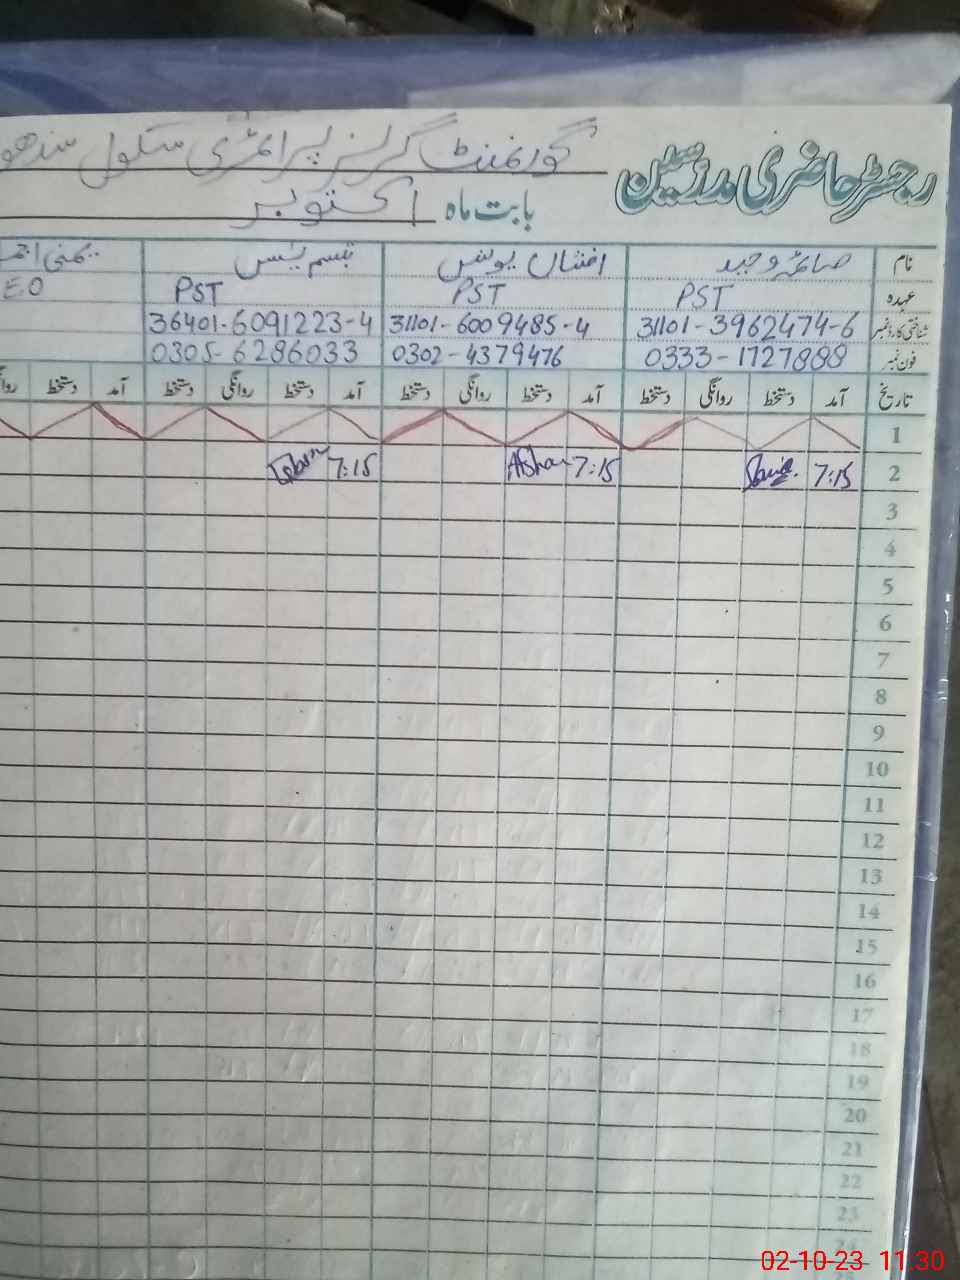 رجسٹر حاضری مدرسین گورنمنٹ گرلز پرائمری سکول
بابت ماہ اکتوبر
نام صائمہ وحید افشاں یونس تبسم یٰسین یمنیٰ
عہدہ PST PST PST EO
شناختی کارڈ نمبر 31101-3962474-6 31101-6009485-4 36401-6091223-4
فون نمبر 0333-1727888 0302-4379476 0305-6286033
تاریخ آمد دستخط روانگی دستخط آمد دستخط روانگی دستخط آمد دستخط روانگی دستخط آمد دستخط
1
2 7:15 7:15 Afshan 7:15
3
4
5
6
7
8
9
10
11
12
13
14
15
16
17
18
19
20
21
22
23
24
02-10-23 11.30